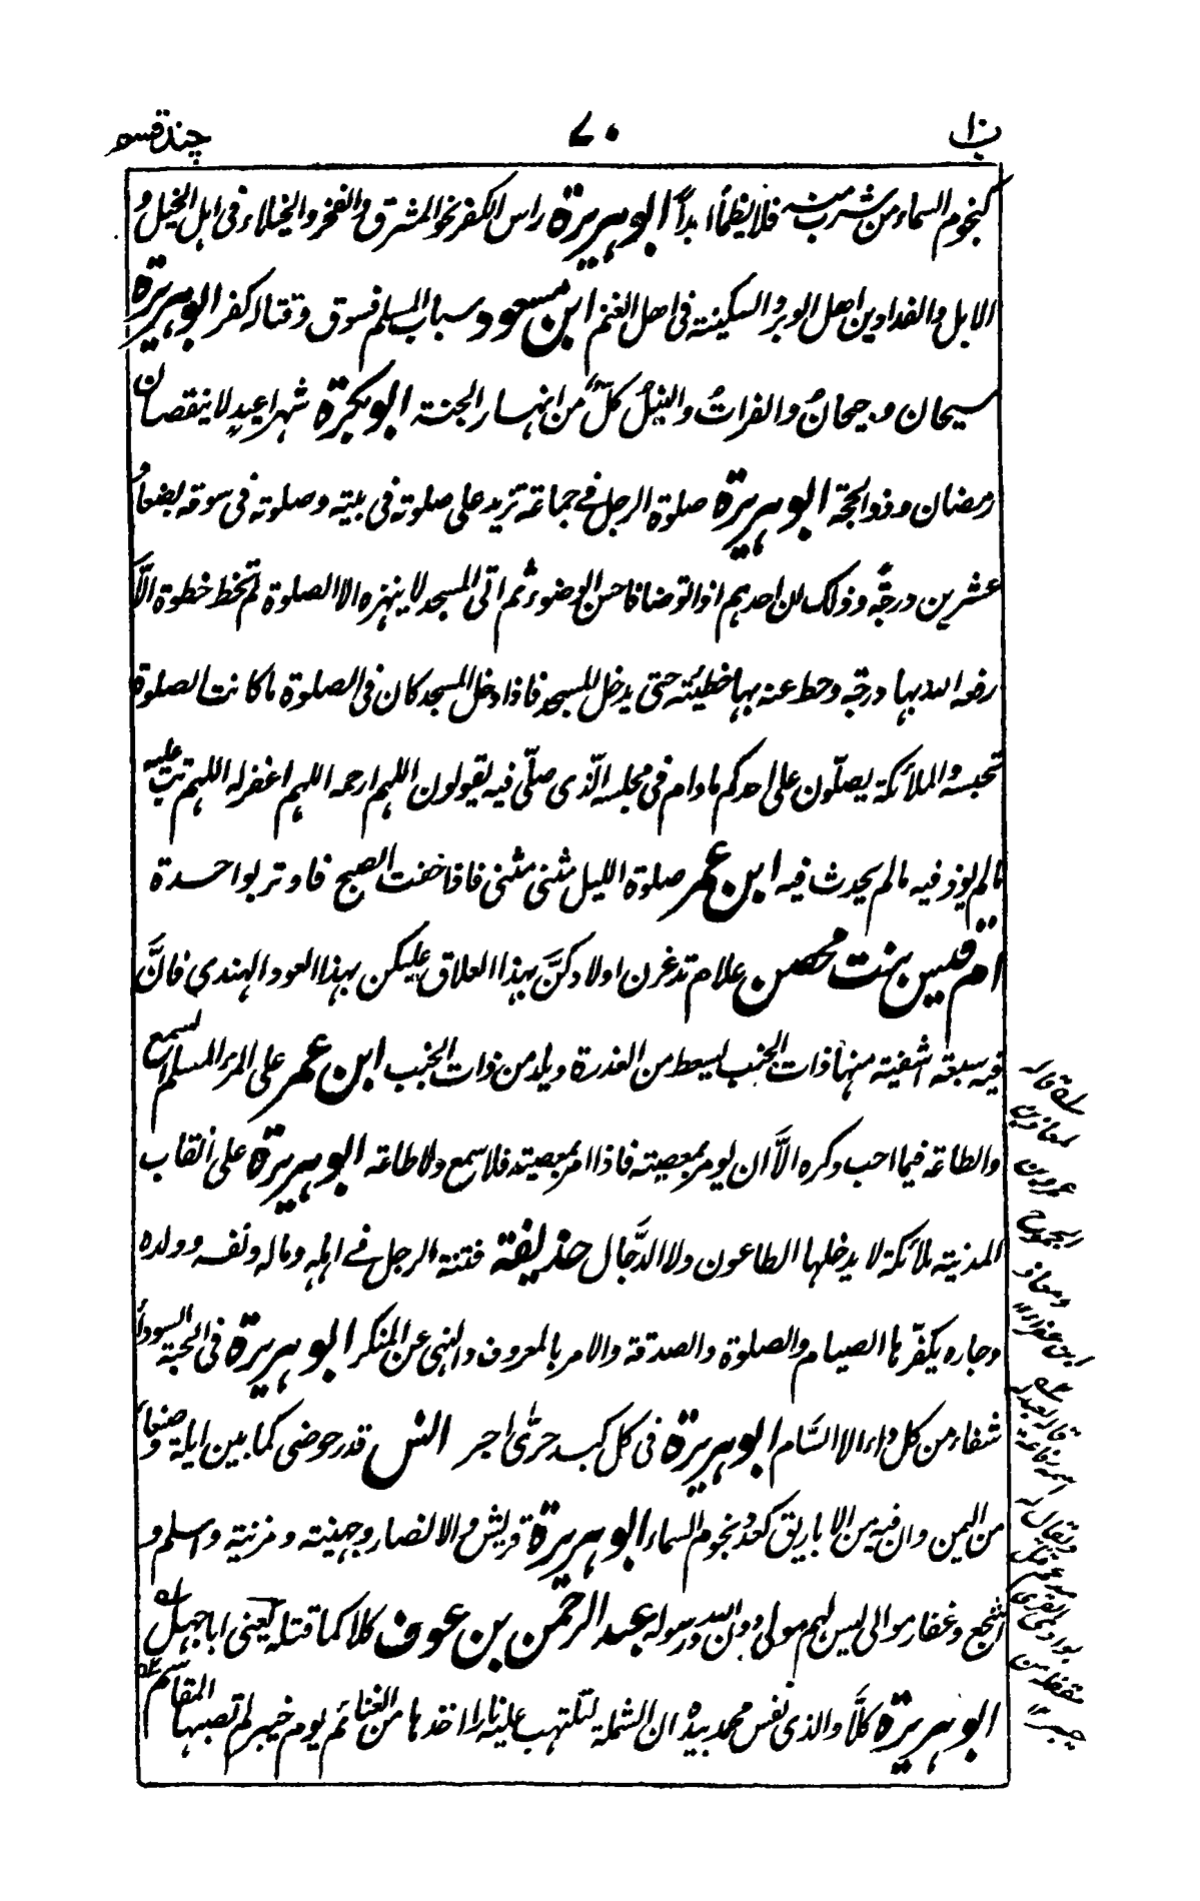 ب ۱۰ ۷۰ چند قسم
کنجوم السماء من شرب منه فلا یظمأ ابداً ابو ہریرة راس الکفر نحو المشرق والفخر والخیلاء فی اہل الخیل و
الابل والفدادین اهل الوبر والسکینۃ فی اهل الغنم ابن مسعود سباب المسلم فسوق وقتاله کفر ابو ہریرة
سیحان و جیحانُ والفراتُ والنیلُ کلٌّ من انہار الجنۃ ابو بکرة شہرا عیدٍ لا ینقصان
رمضان وذو الحجۃ ابو ہریرة صلوة الرجل فے جماعۃ تزید علی صلوتہ فی بیتہ وصلوتہ فی سوقہ بضعاً و
عشرین درجۃً وذلک لان احدہم اذا توضا فاحسن الوضوء ثم اتی المسجد لا ینہزہ الا الصلوة لم یخط خطوة الّا
رفعہ اللہ بہا درجۃ وحط عنہ بہا خطیئۃ حتی یدخل المسجد فاذا دخل المسجد کان فی الصلوة ما کانت الصلوة
تحبسہ والملائکۃ یصلّون علی احدکم ما دام فی مجلسہ الّذی صلّی فیہ یقولون اللہم ارحمہ اللہم اغفر لہ اللہم تب علیہ
ما لم یوذ فیہ ما لم یحدث فیہ ابن عمر صلوة اللیل مثنی مثنی فاذا خفت الصبح فاوتر بواحدة
ام قیس بنت محصن علام تدغرن اولادکنّ بہذا العلاق علیکن بہذا العود الہندی فانَّ
فیہ سبعۃ اشفیۃ منہا ذات الجنب یسعط من العذرة ویلد من ذات الجنب ابن عمر علی المرء المسلم السمع
والطاعۃ فیما احب وکرہ الاَّ ان یومر بمعصیتہ فاذا امر بمعصیتہ فلا سمع ولا طاعۃ ابو ہریرة علی انقاب
المدنیۃ ملائکۃ لا یدخلہا الطاعون ولا الدَّجال حذیفۃ فتنۃ الرجل فے اہلہ ومالہ ونفسہ وولدہ
وجارہ یکفّرہا الصیام والصلوة والصدقۃ والامر بالمعروف والنہی عن المنکر ابو ہریرة فی الحبۃ السوداء
شفاء من کل داء الا السَّام ابو ہریرة فی کل کبد حرّٰی اجر انس قدر حوضی کما بین ایلۃ وصنعاء
من الیمن وان فیہ من الاباریق کعدد نجوم السماء ابو ہریرة قریش والانصار وجہینۃ ومزینۃ واسلم و
اشجع وغفار موالی لیس لہم مولی دون اللہ ورسولہ عبد الرحمن بن عوف کلا کما قتلہ یعنی ابا جہل
ابو ہریرة کلَّا والذی نفس محمد بیدہ ان الشملۃ لتلتہب علیہ نارا اخذہا من الغنائم یوم خیبر لم تصبہا المقاسم
لہ قالہ
لمعاذ بن
عمرو بن
الجموح
ومعاذ
ابن عفراء ۱۲
قالہ لعبد لہ
اسمہ رفاعۃ